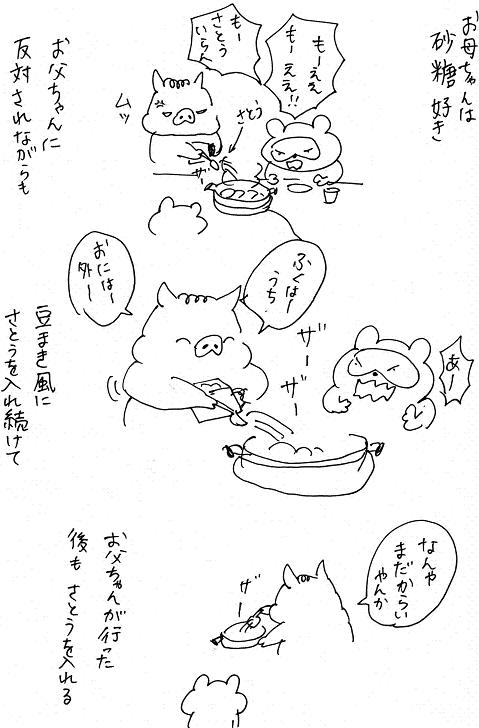 お母ちゃんは
砂糖好き
もーええ
もーええ!!
もー
さとう
いらん
さとう
ザー
ムッ
お父ちゃんに
反対されながらも
ふくはー
うち
おにはー
外ー
ザー
ザー
あー
豆まき風に
さとうを入れ続けて
なんや
まだからい
やんか
ザー
お父ちゃんが行った
後も さとうを入れる